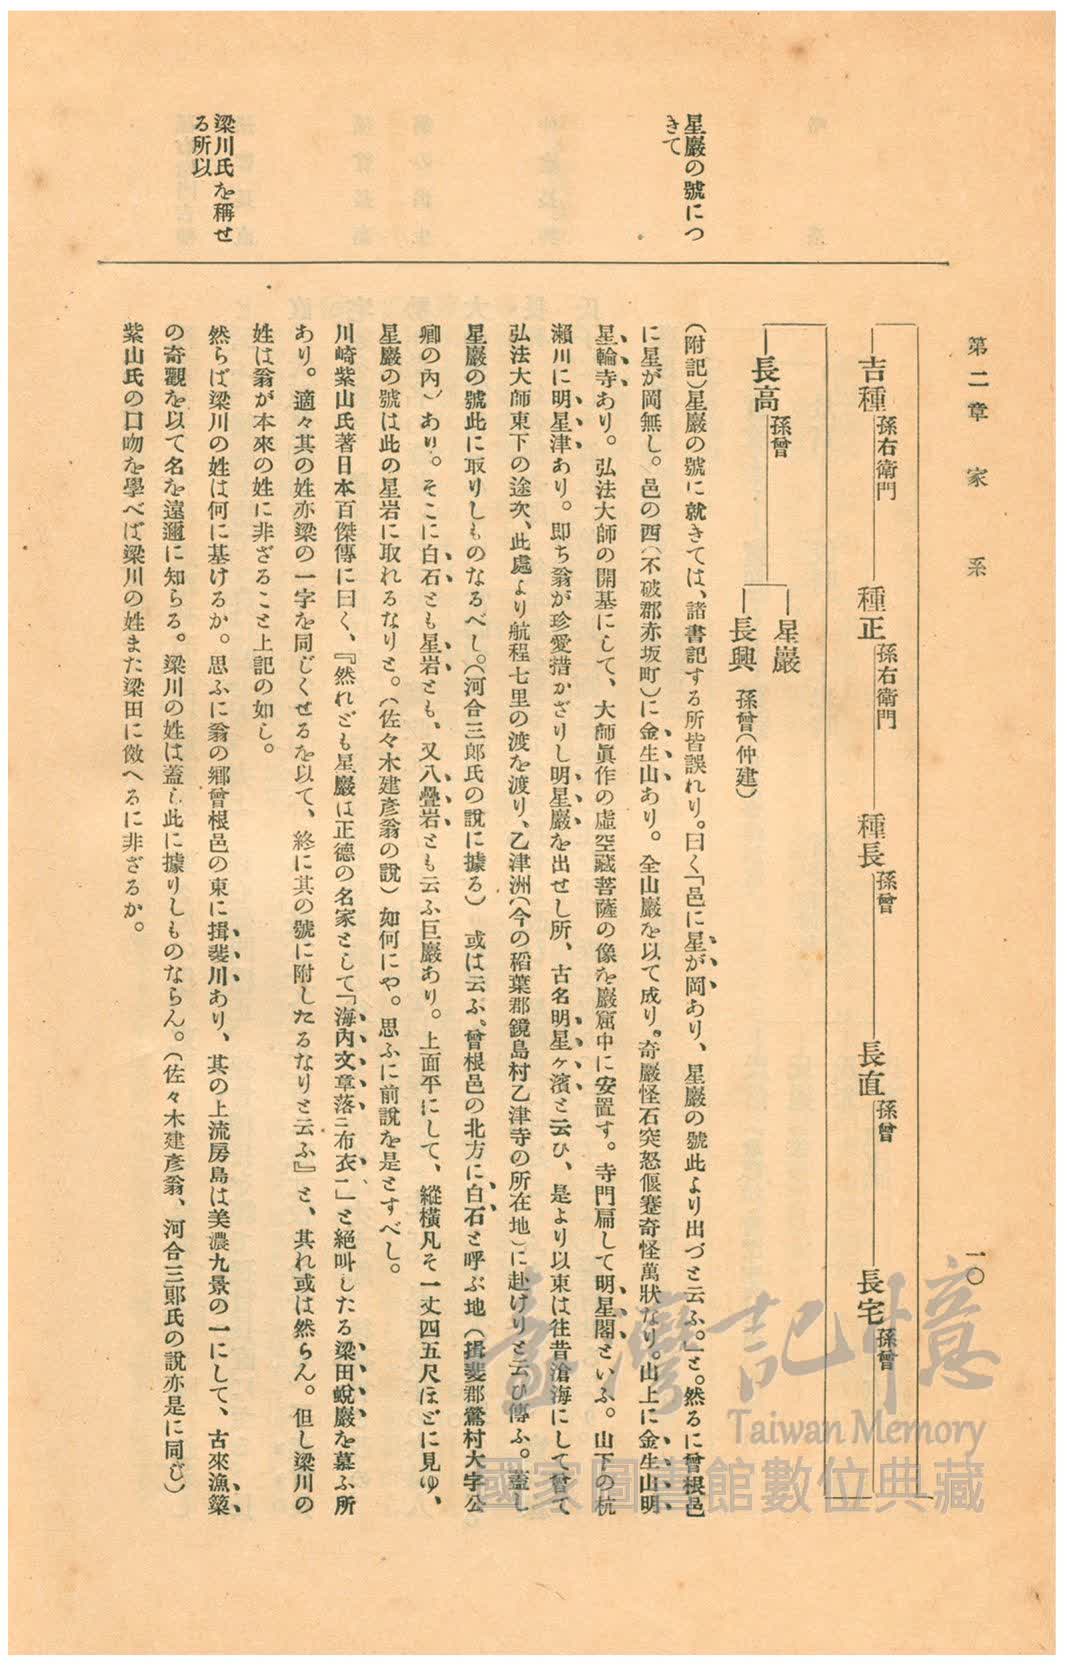 第二章　家　系
一〇
吉種 孫右衛門
種正 孫右衛門
種長 孫曾
長直 孫曾
長宅 孫曾
長高 孫曾
星巖
長興 孫曾(仲建)
星巖の號につ
きて
(附記)星巖の號に就きては、諸書記する所皆誤れり。曰く「邑に星が岡あり、星巖の號此より出づと云ふ。」と。然るに曾根邑
に星が岡無し。邑の西(不破郡赤坂町)に金生山あり。全山巖を以て成り。奇嚴怪石突怒偃蹇奇怪萬狀なり。山上に金生山明
星輪寺あり。弘法大師の開基にして、大師眞作の虛空藏菩薩の像を巖窟中に安置す。寺門扁して明星閣といふ。山下の杭
瀨川に明星津あり。卽ち翁が珍愛措かざりし明星巖を出せし所、古名明星ヶ濱と云ひ、是より以東は往昔滄海にして曾て
弘法大師東下の途次、此處より航程七里の渡を渡り、乙津洲(今の稻葉郡鏡島村乙津寺の所在地)に赴けりと云ひ傳ふ。蓋し
星巖の號此に取りしものなるべし。(河合三郎氏の說に據る)　或は云ふ、曾根邑の北方に白石と呼ぶ地(揖斐郡鶯村大字公
卿の內)あり。そこに白石とも星岩とも、又八疊岩とも云ふ巨巖あり。上面平にして、縱橫凡そ一丈四五尺ほどに見ゆ、
星巖の號は此の星岩に取れるなりと。(佐々木建彥翁の說)　如何にや。思ふに前說を是とすべし。
川崎紫山氏著日本百傑傳に曰く、『然れども星巖は正德の名家として「海內文章落ニ布衣一」と絕叫したる梁田蛻巖を慕ふ所
あり。適々其の姓亦梁の一字を同じくせるを以て、終に其の號に附したるなりと云ふ』と、其れ或は然らん。但し梁川の
姓は翁が本來の姓に非ざること上記の如し。
梁川氏を稱せ
る所以
然らば梁川の姓は何に基けるか。思ふに翁の鄕曾根邑の東に揖斐川あり、其の上流房島は美濃九景の一にして、古來漁簗
の奇觀を以て名を遠邇に知らる。梁川の姓は蓋し此に據りしものならん。(佐々木建彥翁、河合三郎氏の說亦是に同じ)
紫山氏の口吻を學べば梁川の姓また梁田に倣へるに非ざるか。
臺灣記憶
Taiwan Memory
國家圖書館數位典藏